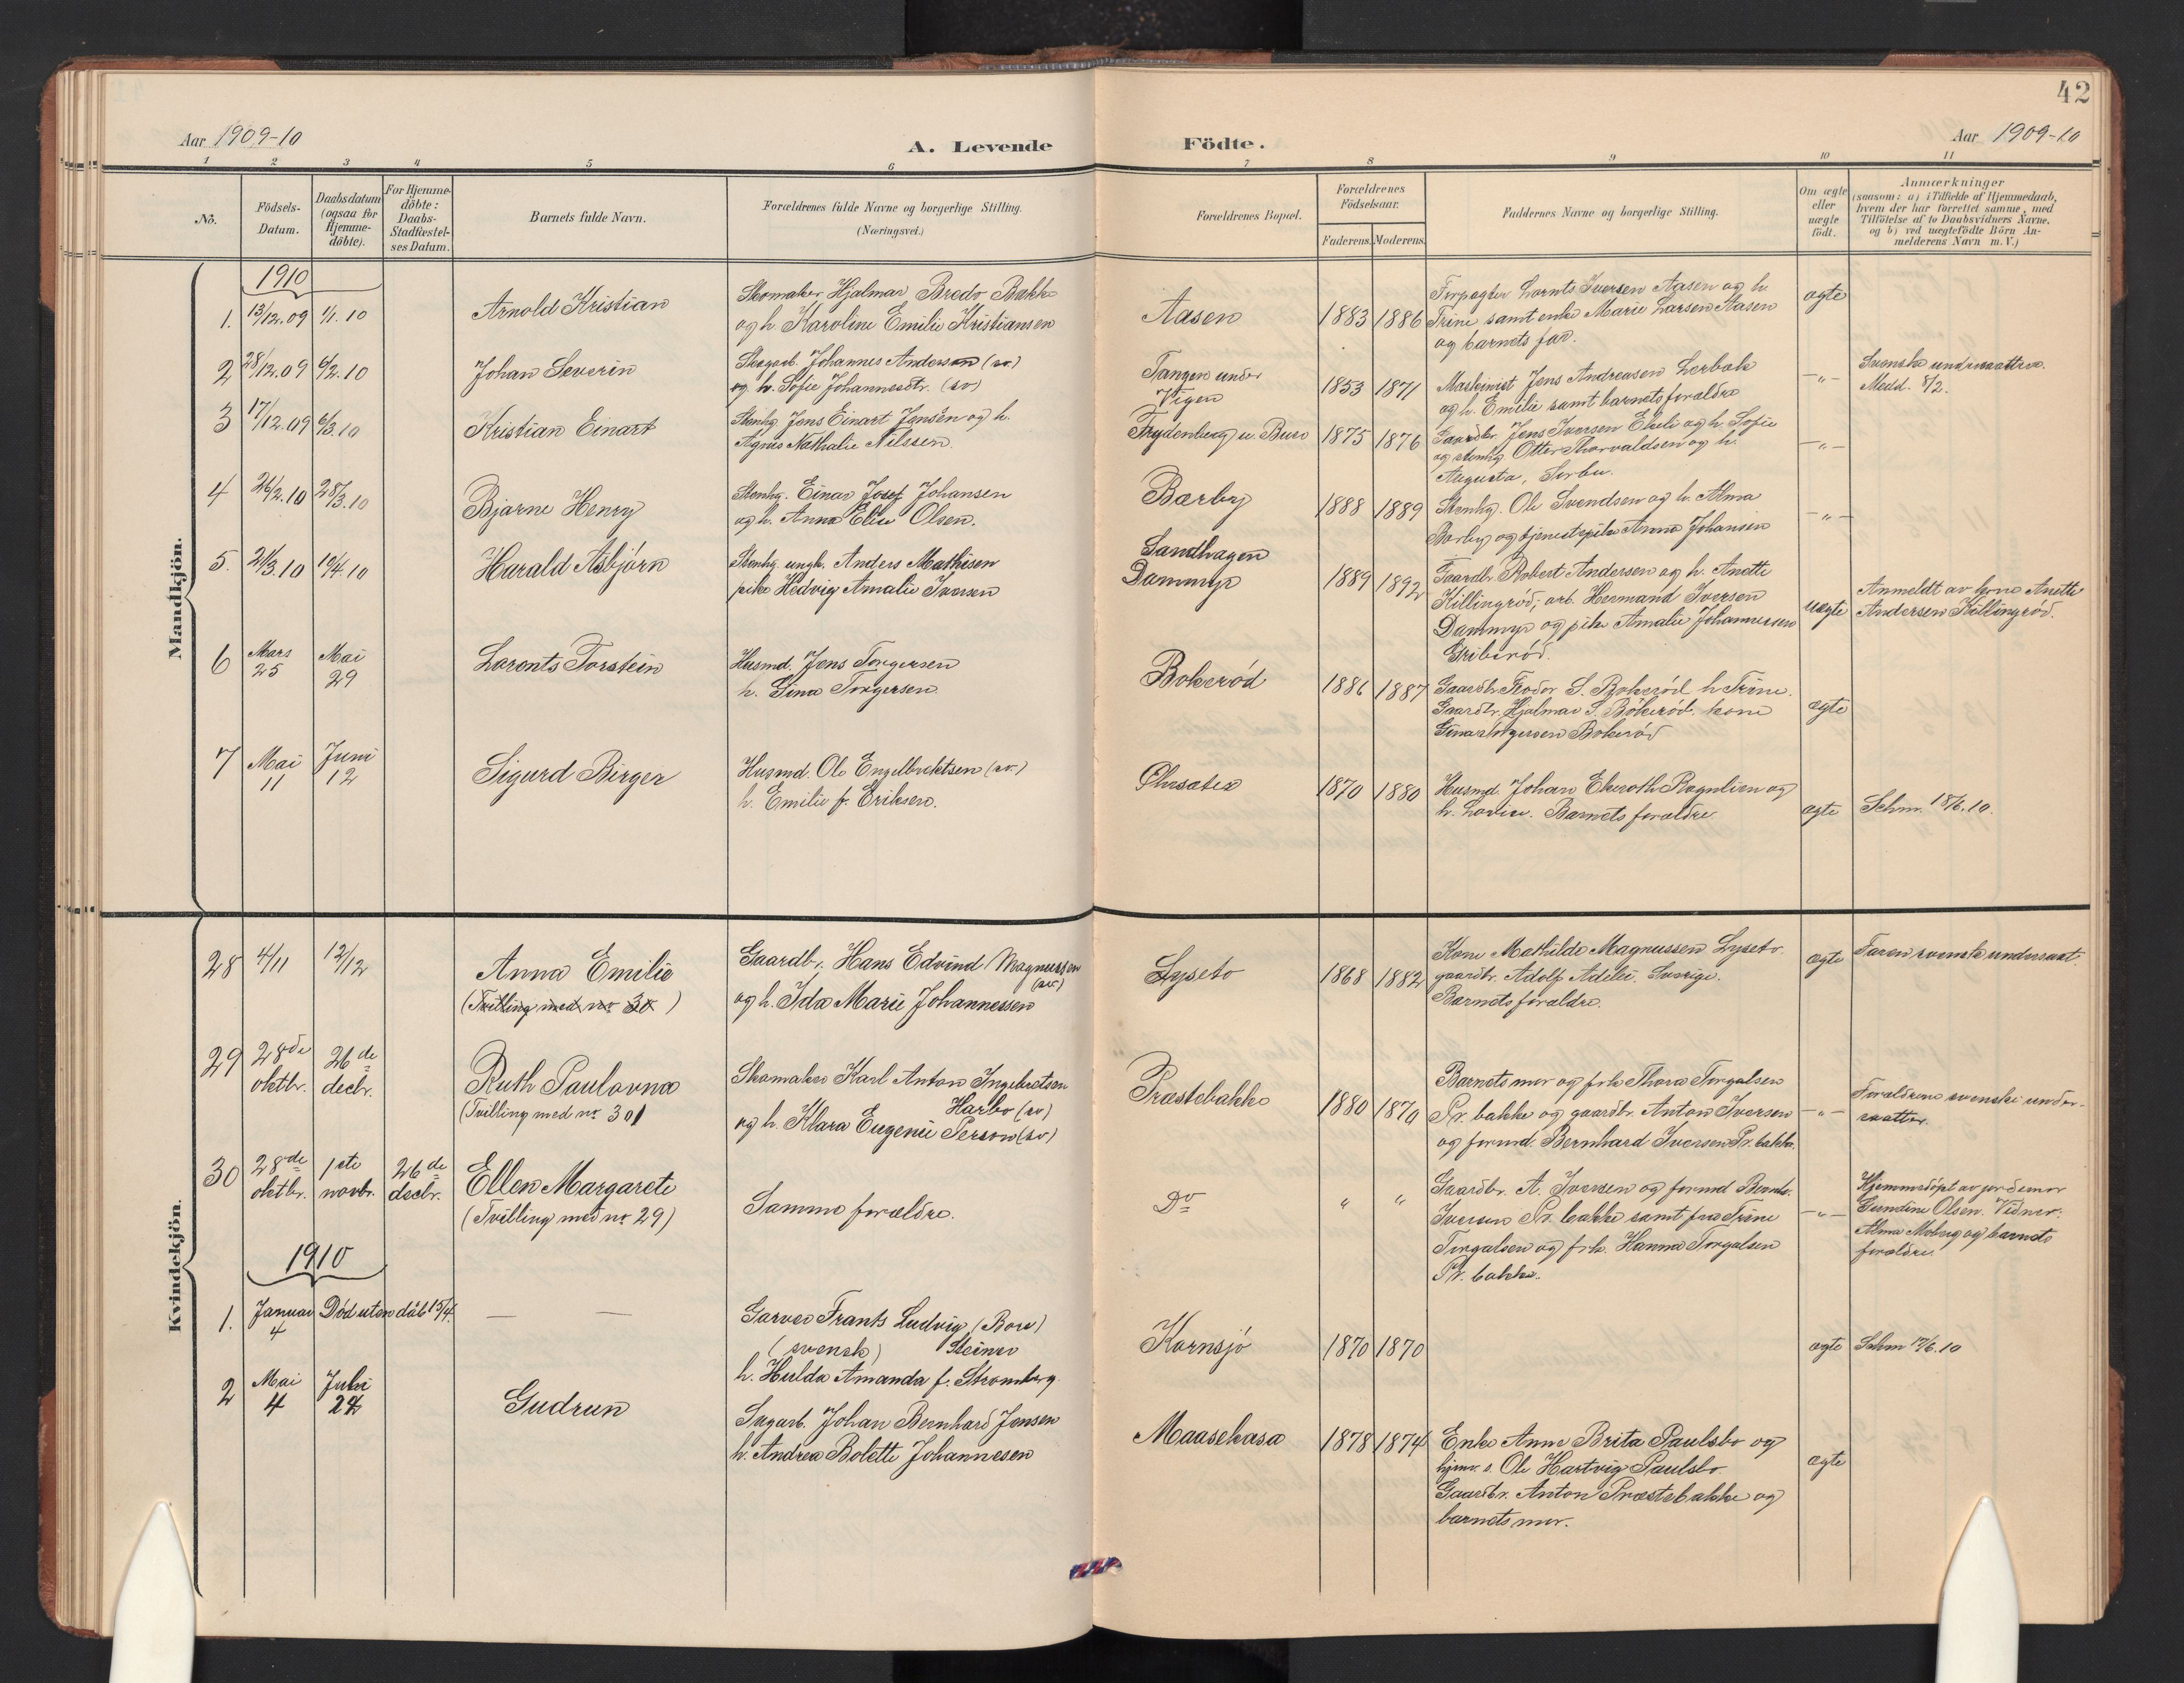 42
Aar 1909-10
A. Levende Födte.
Aar 1909-10
1 2 3 4 5 6 7 8 9 10 11
Nö.
Födsels-Datum.
Daabsdatum (ogsaa for Hjemme-döbte).
For Hjemme-döbte: Daabs-Stadfæstel-ses Datum.
Barnets fulde Navn.
Forældrenes fulde Navne og borgerlige Stilling.
(Næringsvei.)
Forældrenes Bopæl.
Forældrenes Födselsaar.
Faderens. Moderens.
Faddernes Navne og borgerlige Stilling.
Om ægte eller uægte födt.
Anmærkninger
(saasom: a) i Tilfælde af Hjemmedaab,
hvem der har forrettet samme, med
Tilföielse af to Daabsvidners Navne,
og b) ved uægtefödte Börn An-
melderens Navn m. V.)
Mandkjön.
1910
1. 13/12.09 1/1.10
Arnold Kristian
Skomaker Hjalmar Bredo Bakke
og h. Karoline Emilie Kristiansen
Aasen
1883 1886
Forpagter Lornts Iversen Aasen og h.
Trine samt enke Marie Larsen Aasen
og barnets far.
ægte
2 28/12.09 6/2.10
Johan Severin
Skogsarb. Johannes Anderson (sv.)
og h. Sofie Johannesdtr. (sv)
Tangen under
Vigen
1853 1871
Maskinist Jens Andreasen Lerbak
og h. Emilie samt barnets forældre
-"-
Svenske undersaatter.
Medd. 8/2.
3 17/12.09 6/3.10
Kristian Einart
Stenhg. Jens Einart Jensen og h.
Agnes Nathalie Nilssen.
Frydenberg u. Buer
1875 1876
Gaardbr. Jens Iversen Ekeli og h. Sofie
og stenhg. Otter Thorvaldsen og h.
Augusta, Sorbu.
-"-
4 26/2.10 28/3.10
Bjarne Henry
Stenhg. Einar Josef Johansen
og h. Anna Elise Olsen.
Bærby
1888 1889
Stenhg. Ole Svendsen og h. Alma
Bærby og tjenestepike Anna Johansen
-"-
5. 21/3.10 10/4.10
Harald Asbjørn
Stenhg. ungk. Anders Mathisen
pike Hedvig Amalie Iversen
Sandhagen
Dammyr
1889 1892
Gaardbr. Robert Andersen og h. Anette
Killingrød; arb. Hermand Iversen
Dammyr og pike Amalie Johannessen
Griberød.
uægte
Anmeldt av kone Anette
Andersen Killingrød.
6 Mars 25 Mai 29
Laronts Torstein
Husmd. Jens Torgersen
h. Gina Torgersen
Bokerød
1886 1887
Gaardbr. Frodor S. Bokerød h. Trine.
Gaardbr. Hjalmar S. Bökerød. kone
Gina Torgersen Bokerød
ægte
7 Mai 11 Juni 12
Sigurd Birger
Husmd. Ole Engelbrektsen (sv.)
h. Emilie f. Eriksen.
1870 1880
Husmd. Johan Ekeroth Rognlien og
h. Lovise. Barnets forældre.
ægte
Schm. 18/6.10.
Kvindekjön.
28 4/11 12/12
Anna Emilie
(Tvilling med no 30)
Gaardb. Hans Edvind Magnussen (sv.)
og h. Ida Marie Johannessen
Lyseto
1868 1882
Kone Mathilde Magnussen Lyseto
gaardbr. Adolf Adelii. Sverige.
Barnets forældre.
ægte
Faren svensk undersaat.
29 28de oktbr. 26de decbr.
Ruth Paulovna
(Tvilling med no 30)
Skomaker Karl Anton Ingebretsen
Harbo (sv)
og h. Klara Eugenie Person (sv)
Præstebakke
1880 1879
Barnets mor og frk Thora Torgalsen
Pr. bakke og gaardbr. Anton Iversen
og formd. Bernhard Iversen Pr. bakke.
-"-
Forældrene svenske under-
saatter.
30 28de oktbr. 1ste novbr. 26de decbr.
Ellen Margarete
(Tvilling med no 29)
Samme forældre.
Do
" "
Gaardbr. A. Iversen og formd Bernh.
Iversen Pr. bakke samt fru Trine
Torgalsen og frk. Hanna Torgalsen
Pr. bakke.
-"-
Hjemmedöpt av jordemor
Gundine Olsen. Vidner:
Alma Moberg og barnets
forældre.
1910
1. Januar 4 Död uten dåb 15/4.
— —
Garver Frants Ludvig (Bore)
(svensk) Steiner
h. Hulda Amanda f. Stromberg.
Kornsjö
1870 1870
ægte
Schm 17/6.10
2 Mai 4 Juli 24
Gudrun
Sagarb. Johan Bernhard Jensen
h. Andrea Bolette Johannesen
Maasekasa
1878 1874
Enke Anne Brita Paulsbo og
hjmv. s. Ole Hartvig Paulsbo.
Gaardbr. Anton Præstebakke og
barnets mor.
ægte